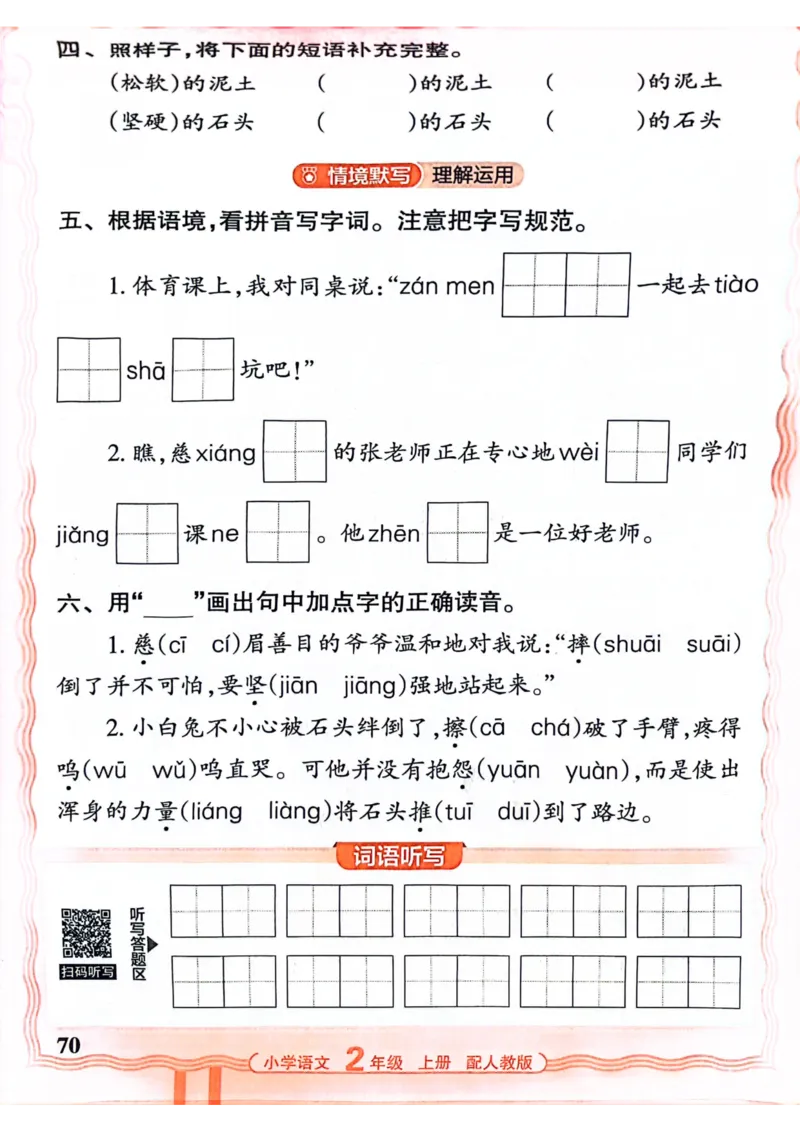 四、照样子,将下面的短语补充完整。
(松软)的泥土 ( )的泥土 ( )的泥土
(坚硬)的石头 ( )的石头 ( )的石头
情境默写 理解运用
五、根据语境,看拼音写字词。注意把字写规范。
1. 体育课上,我对同桌说:“zán men 一起去tiào
shā 坑吧!”
2. 瞧,慈xiáng 的张老师正在专心地wèi 同学们
jiǎng 课ne 。他zhēn 是一位好老师。
六、用“____”画出句中加点字的正确读音。
1. 慈(cī cí)眉善目的爷爷温和地对我说:“摔(shuāi suāi)
倒了并不可怕,要坚(jiān jiāng)强地站起来。”
2. 小白兔不小心被石头绊倒了,擦(cā chá)破了手臂,疼得
呜(wū wǔ)呜直哭。可他并没有抱怨(yuān yuàn),而是使出
浑身的力量(liáng liàng)将石头推(tuī duī)到了路边。
词语听写
听写答题区
扫码听写
70
小学语文 2年级 上册 配人教版